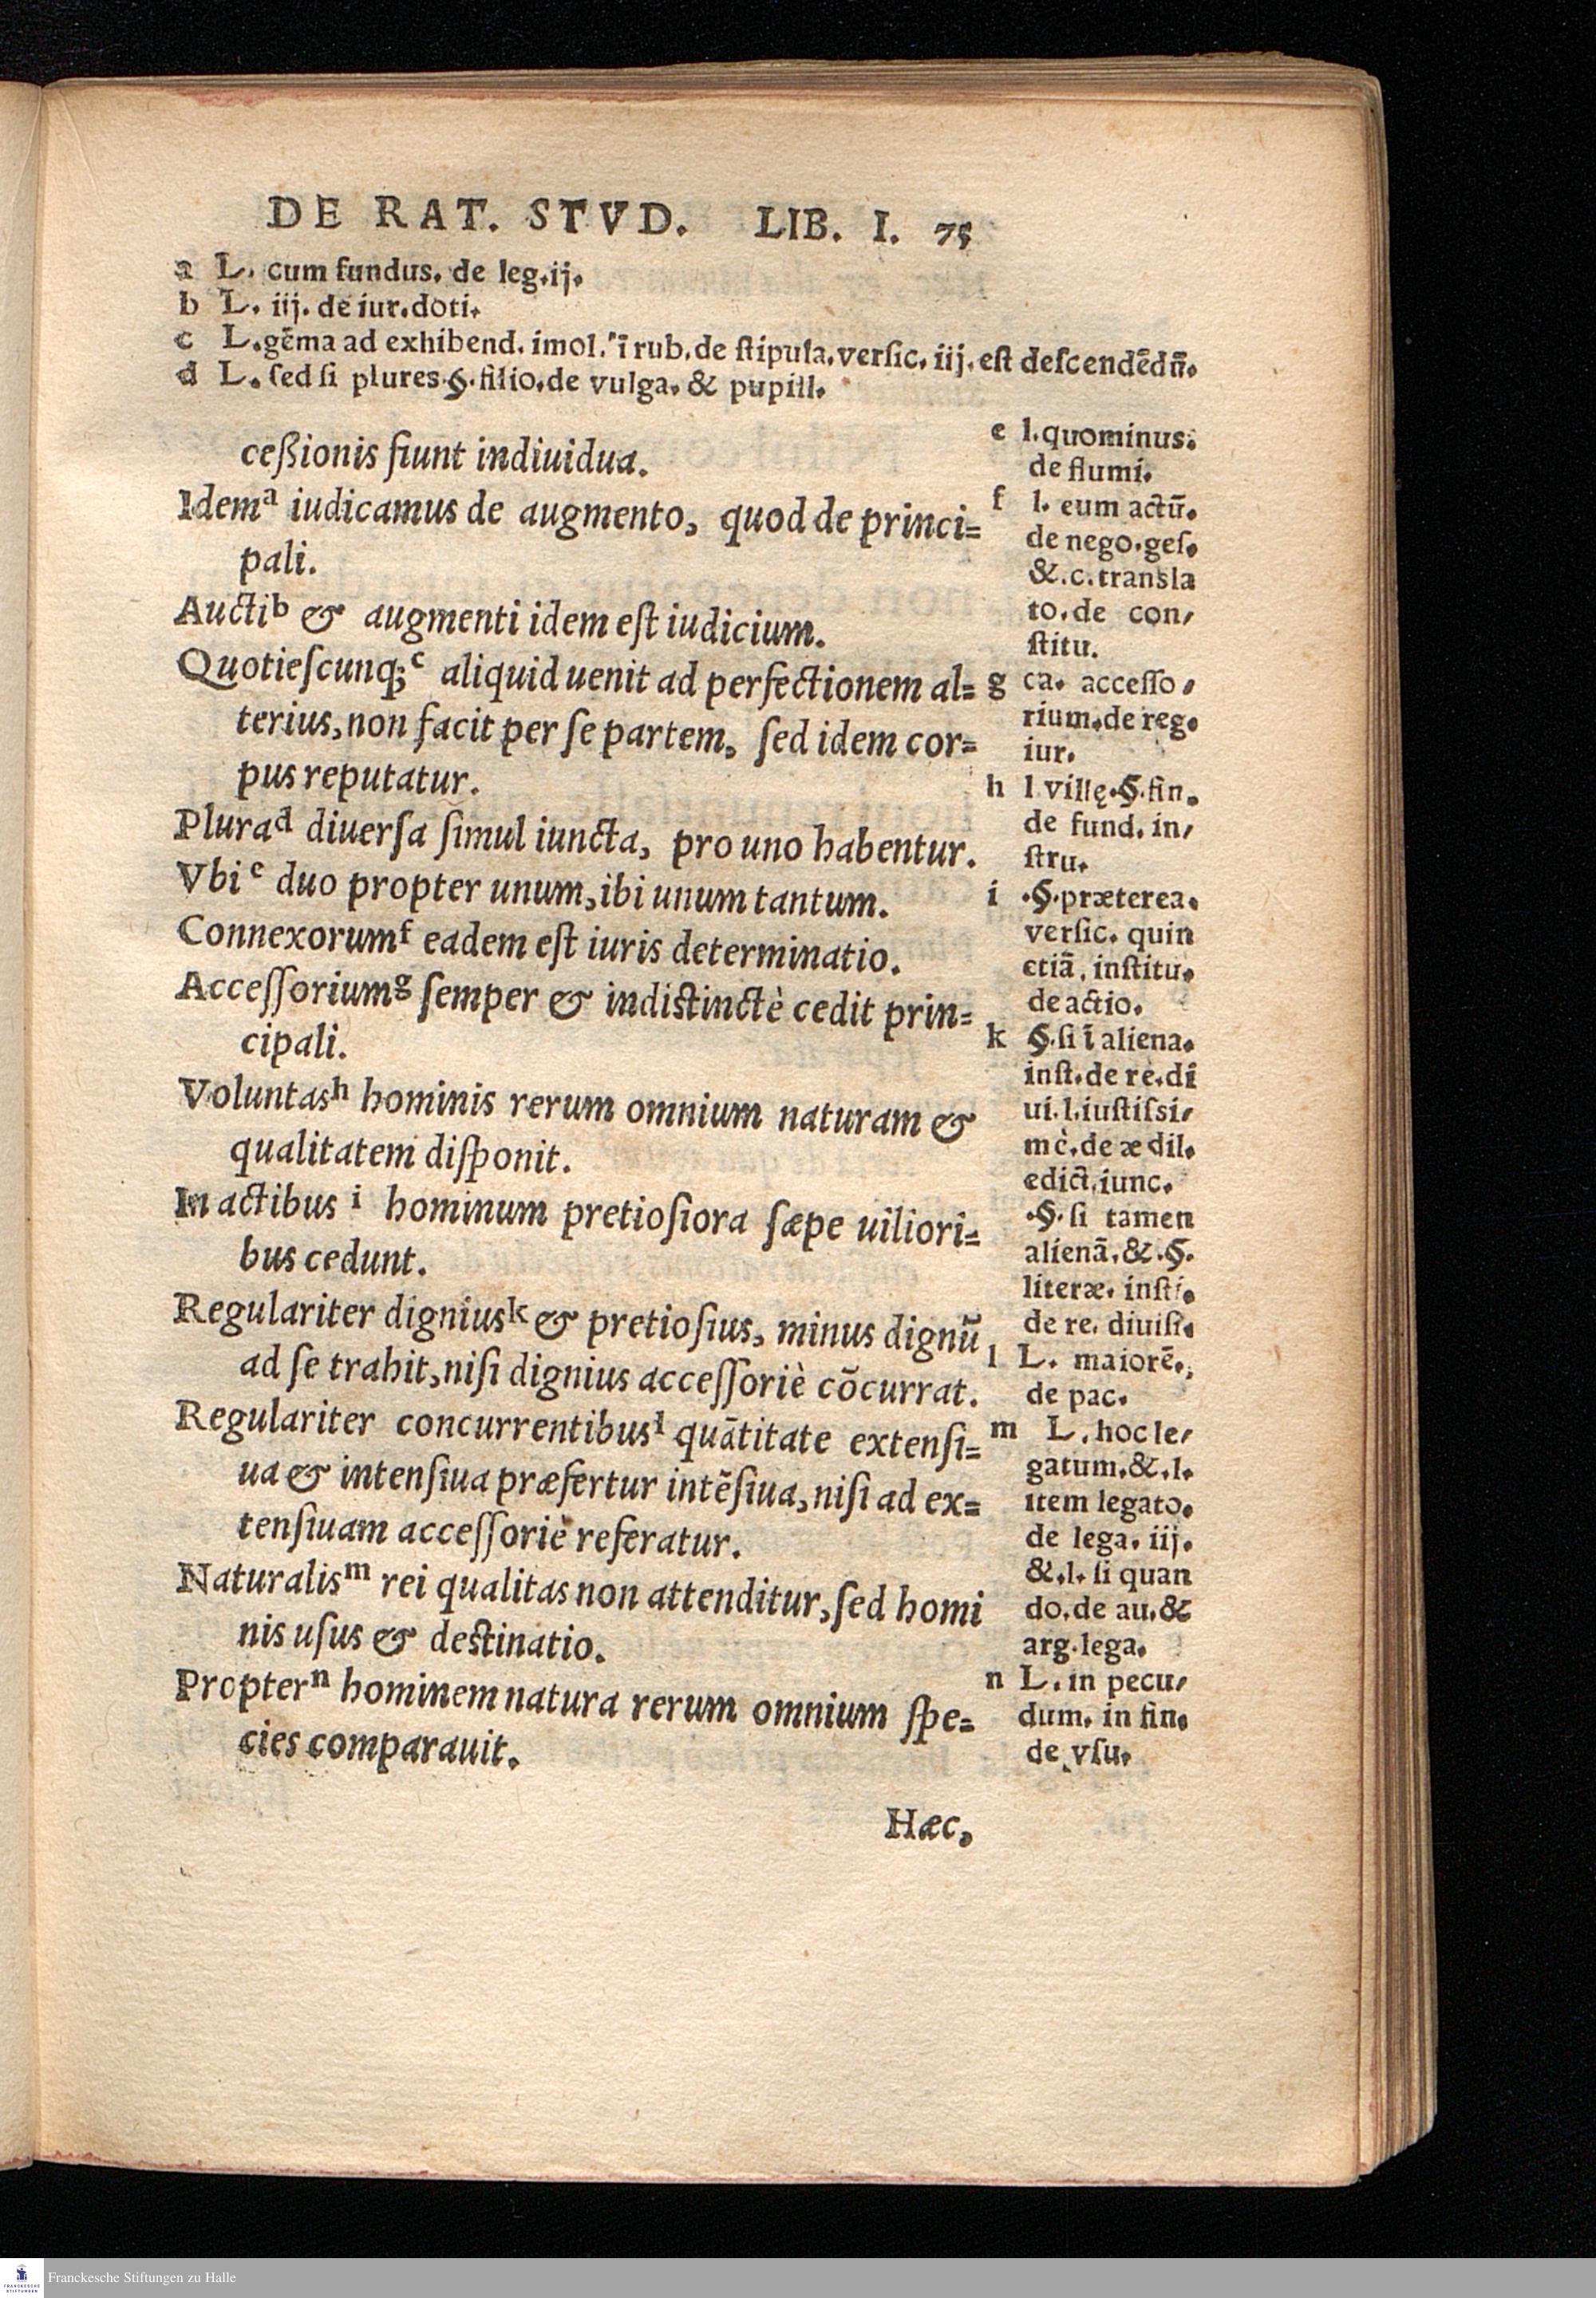 DE RAT. STVD. LIB. I. 75
a L. cum fundus. de leg.ij.
b L. iij. de iur.doti.
c L.gēma ad exhibend. imol. ī rub.de ſtipula.verſic.iij.eſt deſcendēdū.
d L. ſed ſi plures.§.filio.de vulga. & pupill.
ceßionis fiunt indiuidua.
Idemᵃ iudicamus de augmento, quod de princi=
pali.
Auctiᵇ & augmenti idem eſt iudicium.
Quotieſcunq;ᶜ aliquid uenit ad perfectionem al=
terius,non facit per ſe partem, ſed idem cor=
pus reputatur.
Pluraᵈ diuerſa ſimul iuncta, pro uno habentur.
Vbiᵉ duo propter unum,ibi unum tantum.
Connexorumᶠ eadem eſt iuris determinatio.
Acceſſoriumᵍ ſemper & indiſtinctè cedit prin=
cipali.
Voluntasʰ hominis rerum omnium naturam &
qualitatem diſponit.
In actibus ⁱ hominum pretioſiora ſæpe uiliori=
bus cedunt.
Regulariter digniusᵏ & pretioſius, minus dignū
ad ſe trahit,niſi dignius acceſſoriè cōcurrat.
Regulariter concurrentibusˡ quātitate extenſi=
ua & intenſiua præfertur intēſiua,niſi ad ex=
tenſiuam acceſſoriè referatur.
Naturalisᵐ rei qualitas non attenditur,ſed homi
nis uſus & deſtinatio.
Propterⁿ hominem natura rerum omnium ſpe=
cies comparauit.
Hæc.
e l.quominus.
de flumi.
f l. eum actū.
de nego.geſ.
&.c.transla
to.de con/
ſtitu.
g ca. acceſſo/
rium.de reg.
iur.
h l villę.§.fin.
de fund. in/
ſtru.
i .§.præterea.
verſic. quin
etiā, inſtitu.
de actio.
k §.ſi ī aliena.
inſt.de re.di
ui.l.iuſtiſsi/
mè.de ædil.
edict.iunc.
.§.ſi tamen
alienā.&.§.
literæ. inſti.
de re. diuiſi.
l L. maiorē.
de pac.
m L.hoc le/
gatum.&.l.
item legato.
de lega. iij.
&.l. ſi quan
do.de au.&
arg.lega.
n L.in pecu/
dum. in fin.
de vſu.
Franckesche Stiftungen zu Halle